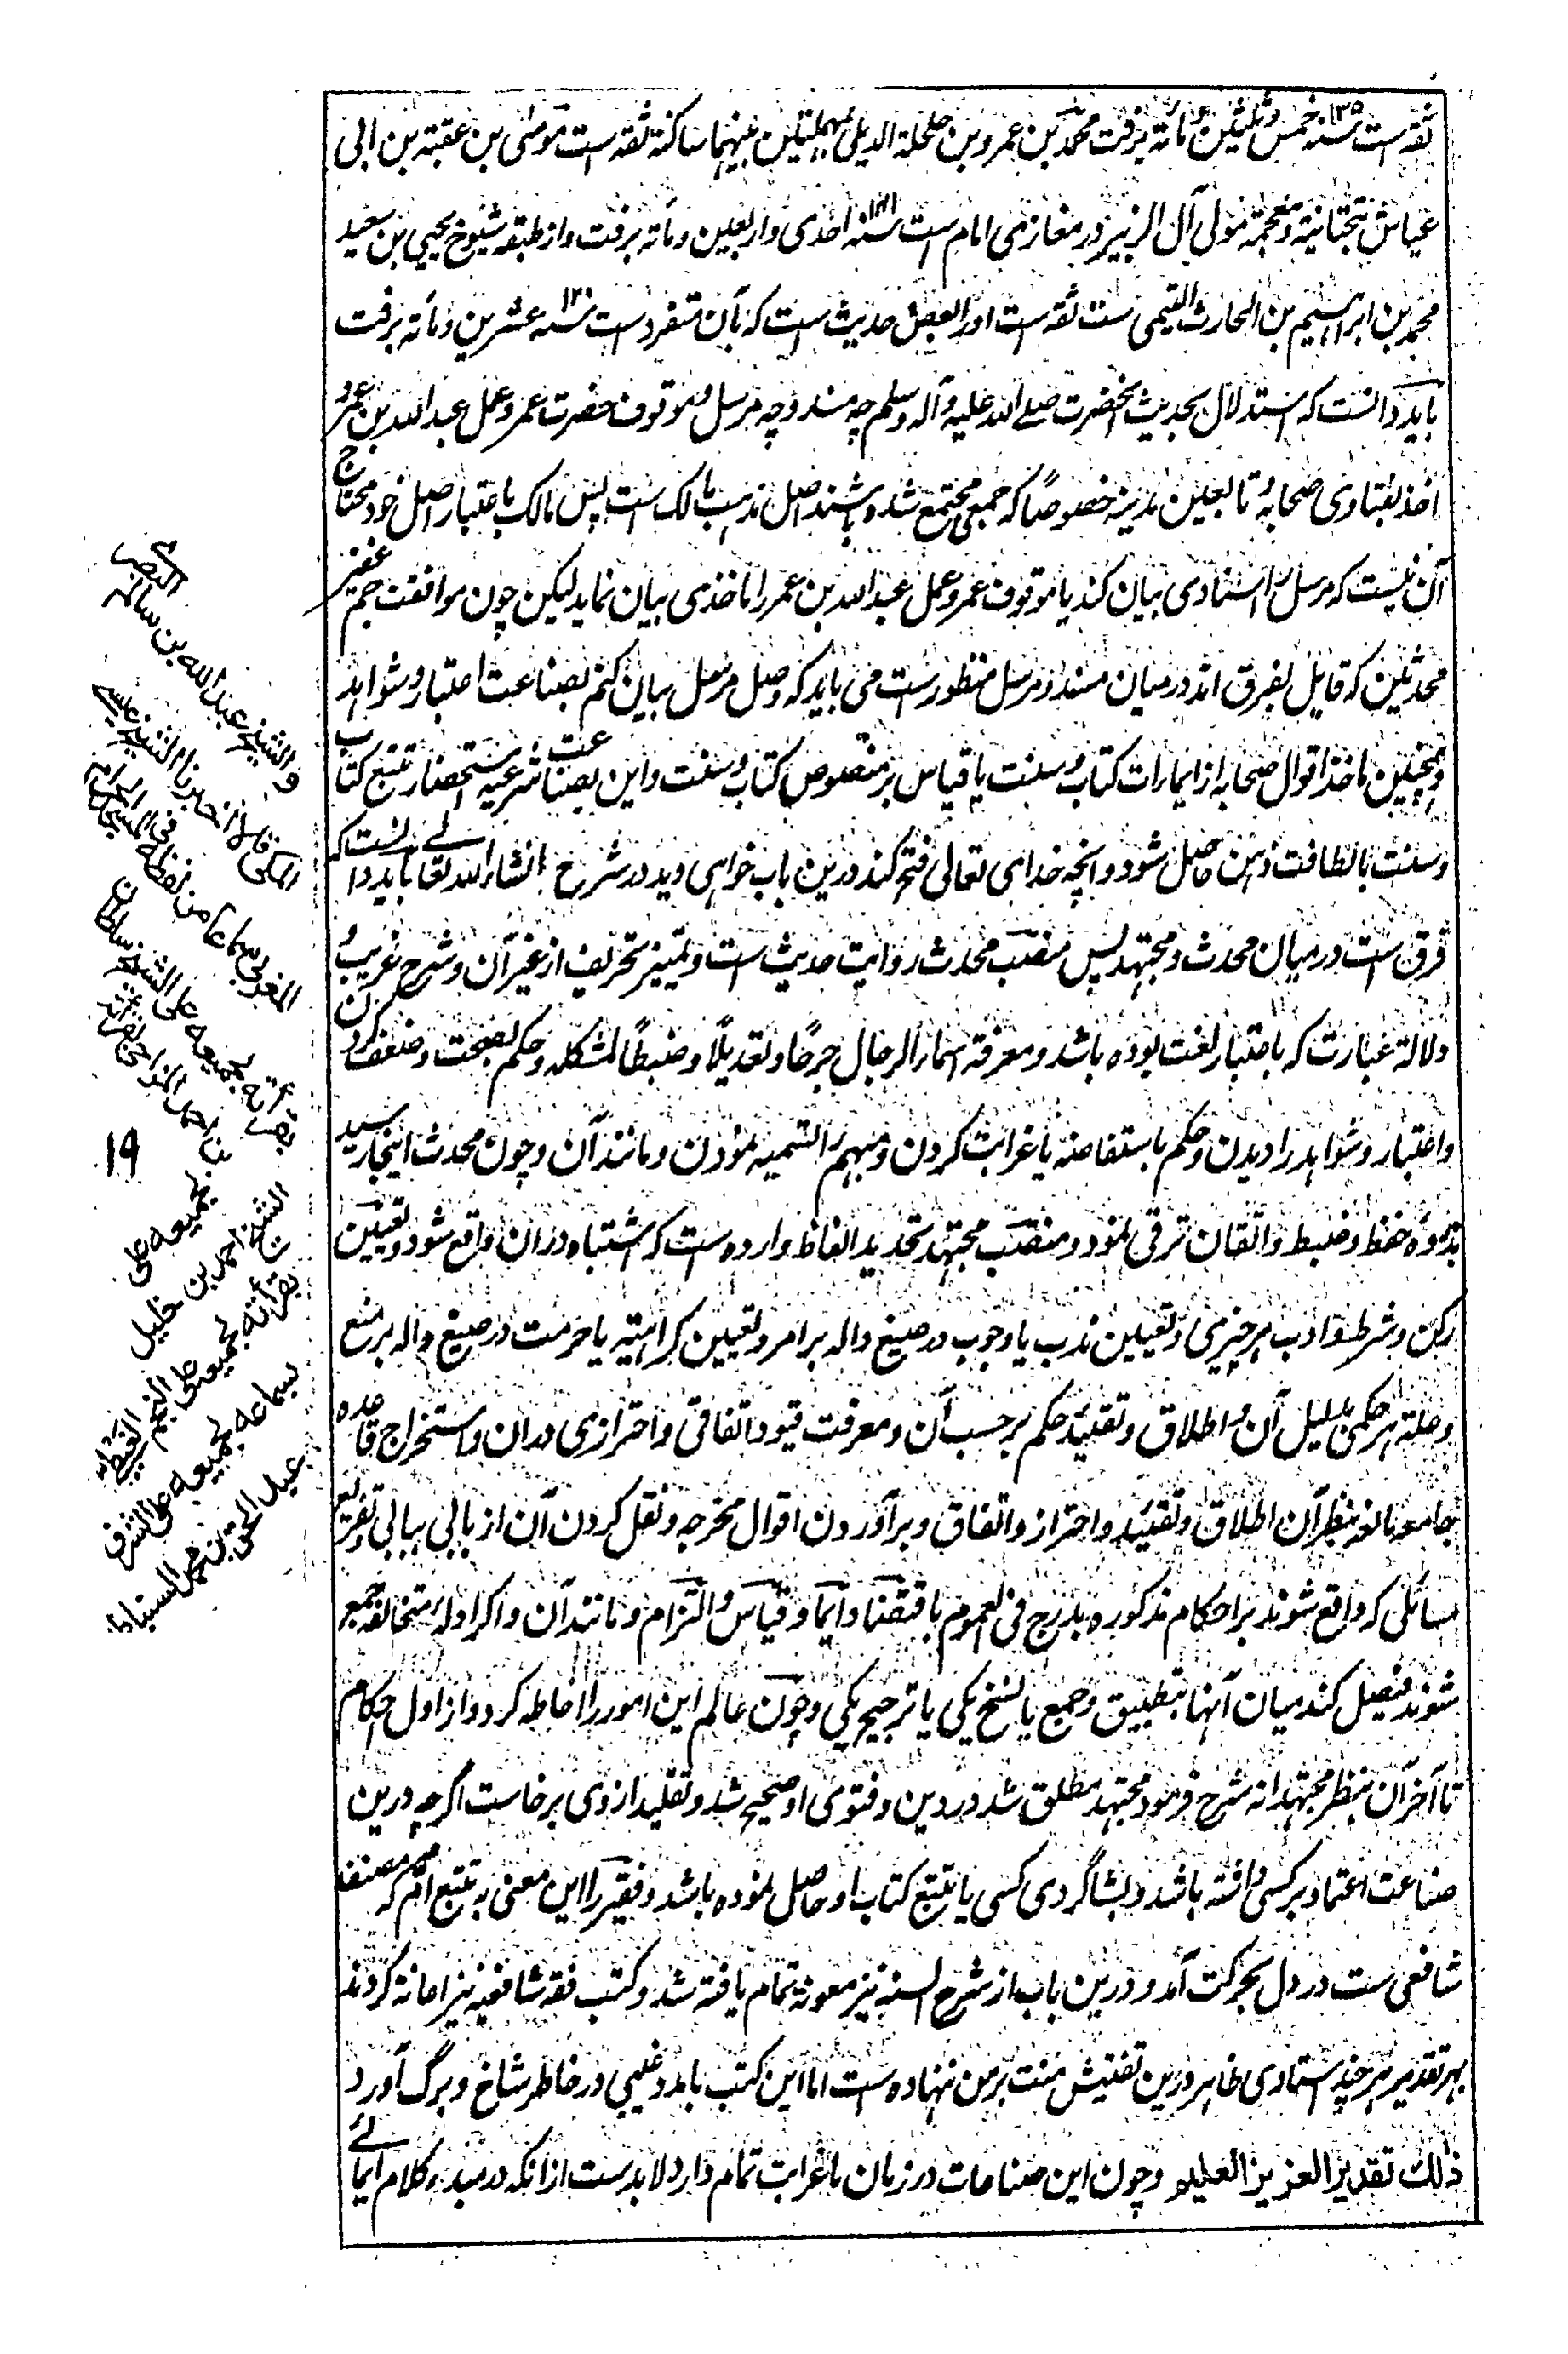 ثقه است سنه ۱۳۵ خمس وثلثین ومأته برفت محمد بن عمرو بن حلحلة الدیلی بمهملتین بینهما ساکنة ثقه است موسی بن عقبة بن ابی
عیاش بتحتانیة ومعجمة مولی آل الزبیر در مغازی امام است سنه ۱۴۱ احدی واربعین ومأته برفت واز طبقه شیوخ یحیی بن سعید
محمد بن ابراهیم بن الحارث التیمی ست ثقه است اورا بعض حدیث است که بآن متفرد ست سنه ۱۲۰ عشرین ومأته برفت
باید دانست که استدلال بحدیث آنحضرت صلے الله علیه وآله وسلم چه مسند وچه مرسل وموقوف حضرت عمر وعمل عبدالله بن عمر و
اخذ بفتاوی صحابه وتابعین مدینه خصوصًا که جمعی مجتمع شده باشند اصل مذهب مالک است پس مالک باعتبار اصل خود محتاج
آن نیست که مرسل را اسنادی بیان کند یا موقوف عمر وعمل عبدالله بن عمر را ماخذی بیان نماید لیکن چون موافقت جم غفیر
محدثین که قایل بفرق اند در میان مسند ومرسل منظورست می باید که وصل مرسل بیان کنم بصناعت اعتبار وشواهد
وهمچنین ماخذ اقوال صحابه از ایمارات کتاب وسنت یا قیاس بر منصوص کتاب وسنت واین بصناعت شرعیه استحضار تتبع کتاب
وسنت بالطافت ذهن حاصل شود وانچه خدای تعالی فتح کند درین باب خواهی دید در شرح انشاءالله تعالے باید دانست که
فرق است درمیان محدث ومجتهد پس منصب محدث روایت حدیث است وتمییز تحریف از غیر آن وشرح غریب و
دلالة عبارت که باعتبار لغت بوده باشد ومعرفة اسماء الرجال جرحًا وتعدیلًا وضبطًا لمشکله وحکم بصحت وضعف کردن
واعتبار وشواهد را دیدن وحکم باستفاضة یا غرابت کردن ومبهم را تسمیه نمودن ومانند آن وچون محدث اینجا رسید
بذروه حفظ وضبط واتقان ترقی نمود ومنصب مجتهد تحدید الفاظ وارده ست که اشتباه دران واقع شود وتعیین
رکن وشرط وادب هر چیزی وتعیین ندب یا وجوب در صیغ داله بر امر وتعیین کراهیة یا حرمت در صیغ داله بر منع
وعلة هر حکمی بدلیل آن واطلاق وتقیید حکم برحسب آن ومعرفت قیود اتفاقی واحترازی دران واستخراج قاعده
جامعه مانعه بنظر آن اطلاق وتقیید واحتراز واتفاق وبرآوردن اقوال مخرجه ونقل کردن آن از بابی ببابی وتفریع
مسائلی که واقع شوند بر احکام مذکوره بدرج فی العموم باقتضا وایما وقیاس والتزام ومانند آن واگر ادله متخالفه جمع
شوند فیصل کند میان آنها بتطبیق وجمع یا نسخ یکی یا ترجیح یکی وچون عالم این امور را احاطه کرد واز اول احکام
تا آخر آن بنظر مجتهدانه شرح فرمود مجتهد مطلق شد در دین وفتوی او صحیح شد وتقلید از وی برخاست اگرچه درین
صناعت اعتماد بر کسی داشته باشد وبشاگردی کسی یا تتبع کتاب او حاصل نموده باشد وفقیر را این معنی به تتبع ام که مصنفه
شافعی ست در دل بحرکت آمد ودرین باب از شرح السنه نیز معونة تمام یافته شد وکتب فقه شافعیه نیز اعانة کردند
بهرتقدیر هرچند استادی ظاهر درین تفتیش منت بر من ننهاده ست اما این کتب بامداد غیبی در خاطر شاخ وبرگ آورد
ذلك تقدیر العزیز العلیم وچون این صناعات درزمان ما غرابت تمام دارد لابدست ازانکه درمبدء کلام ایمائے
البصری
والشیخ عبدالله بن سالم
المکی قالا اخبرنا الشیخ عیسے
المغربی سماعا من لفظه فی المسجد الحرام
بقرأته بجمیعه علی الشیخ سلطان
بن احمد المزاحی بقرأته
بجمیعه علی
الشیخ احمد بن خلیل
بقرأته بجمیعه علی النجم الغیطی
بسماعه بجمیعه علی الشرف
عبدالحق بن محمد السنباطی
19